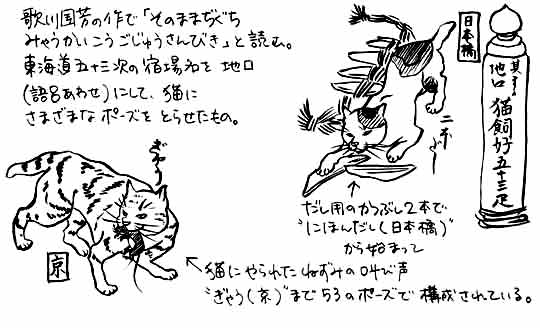 歌川国芳の作で「そのままぢぐち
みゃうかいこうごじゅうさんびき」と読む。
東海道五十三次の宿場名を 地口
(語呂あわせ)にして、猫に
さまざまなポーズを とらせたもの。
日本橋
其まま
地口 猫飼好五十三疋
二本
だし
だし用のかつぶし2本で
"にほんだし(日本橋)"
から始まって
ぎゃう
京
猫にやられたねずみの叫び声
"ぎゃう(京)"まで53のポーズで構成されている。